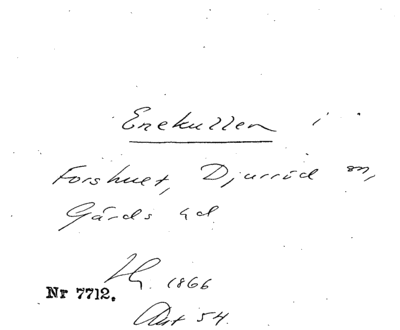 Enekullen i
Forshult, Djurröd sn,
Gärds hd
Hg. 1866
Nr 7712.
Avt 54.